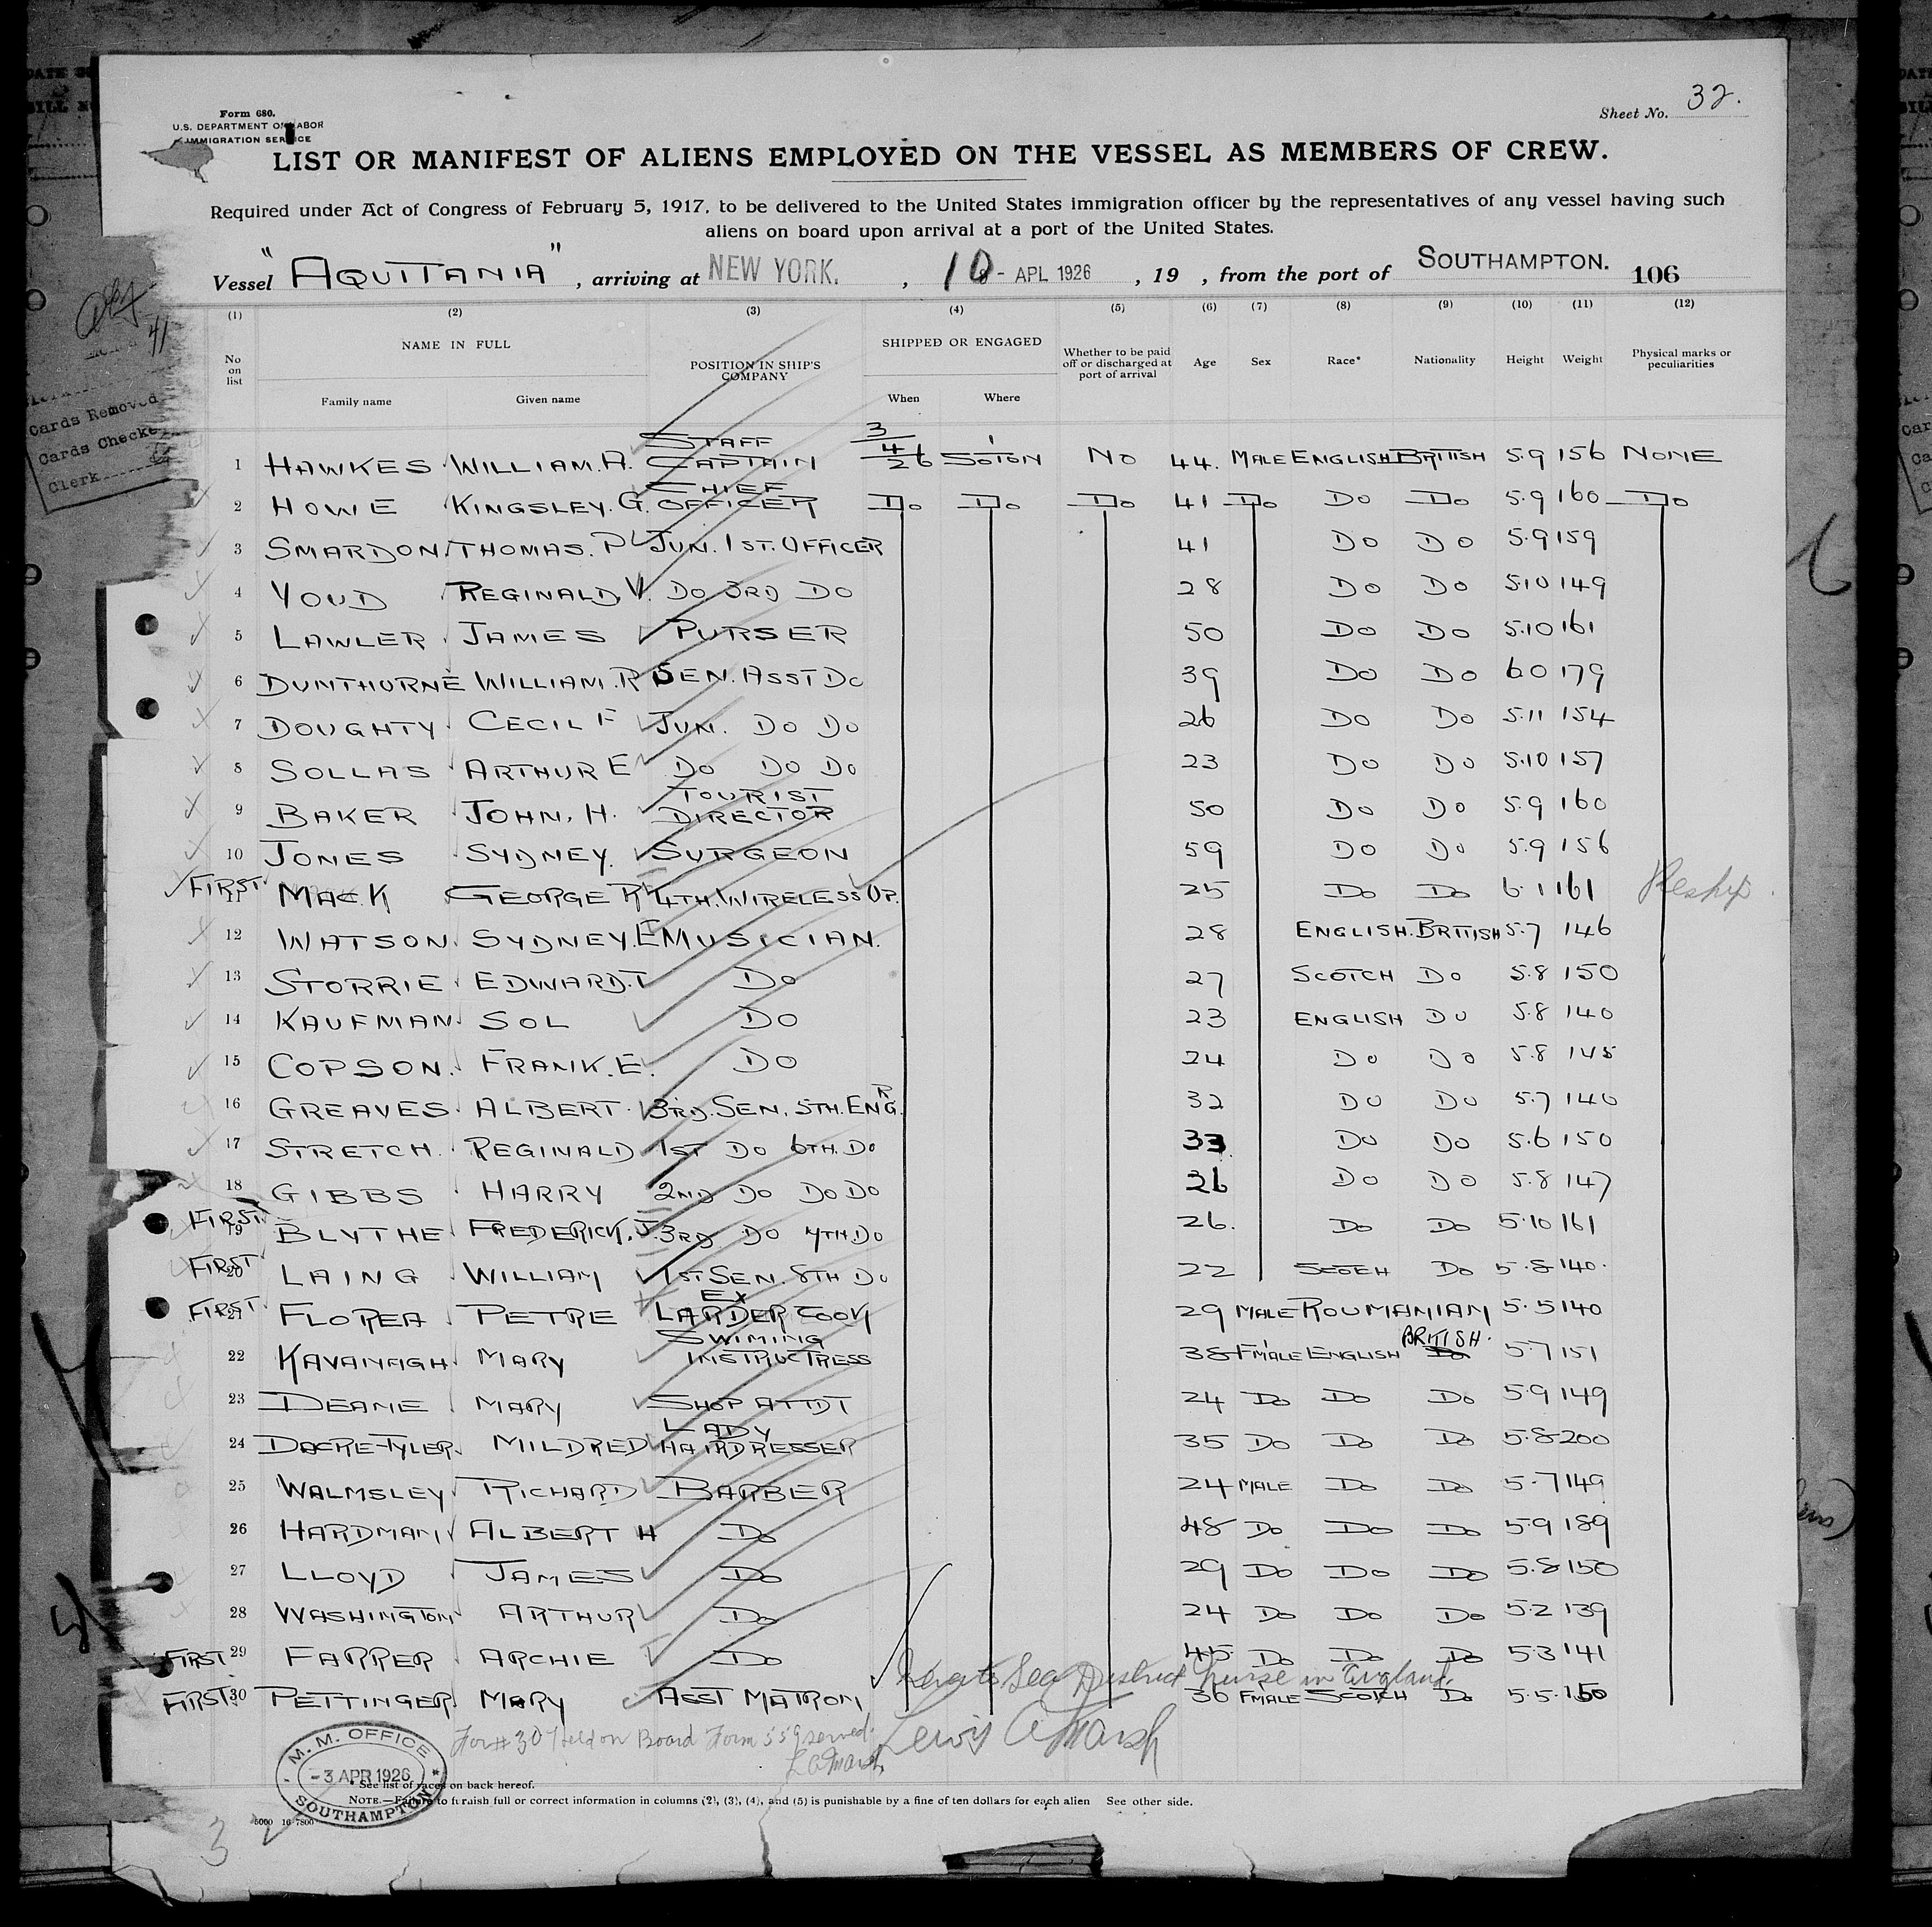 Form 680.
U.S. DEPARTMENT OF LABOR
IMMIGRATION SERVICE
Sheet No. 32.
LIST OR MANIFEST OF ALIENS EMPLOYED ON THE VESSEL AS MEMBERS OF CREW.
Required under Act of Congress of February 5, 1917, to be delivered to the United States immigration officer by the representatives of any vessel having such
aliens on board upon arrival at a port of the United States.
Vessel "AQUITANIA", arriving at NEW YORK. , 10 - APL 1926 , 19 , from the port of SOUTHAMPTON. 106
(1) (2) (3) (4) (5) (6) (7) (8) (9) (10) (11) (12)
No on list NAME IN FULL POSITION IN SHIP'S COMPANY SHIPPED OR ENGAGED Whether to be paid off or discharged at port of arrival Age Sex Race* Nationality Height Weight Physical marks or peculiarities
Family name Given name When Where
1 HAWKES WILLIAM.A. STAFF CAPTAIN 3/4/26 SOTON NO 44. MALE ENGLISH BRITISH 5.9 156 NONE
2 HOWE KINGSLEY.G. CHIEF OFFICER DO DO DO 41 DO DO DO 5.9 160 DO
3 SMARDON THOMAS.P JUN. 1ST. OFFICER 41 DO DO 5.9 159
4 YOUD REGINALD.V. DO 3RD DO 28 DO DO 5.10 149
5 LAWLER JAMES PURSER 50 DO DO 5.10 161
6 DUNTHORNE WILLIAM.R SEN. ASST DO 39 DO DO 6.0 179
7 DOUGHTY CECIL F JUN. DO DO 26 DO DO 5.11 154
8 SOLLAS ARTHUR E DO DO DO 23 DO DO 5.10 157
9 BAKER JOHN. H. TOURIST DIRECTOR 50 DO DO 5.9 160
10 JONES SYDNEY. SURGEON 59 DO DO 5.9 156
FIRST 11 MACK GEORGE R 4TH. WIRELESS OP. 25 DO DO 6.1 161 Reship.
12 WATSON SYDNEY.E MUSICIAN. 28 ENGLISH. BRITISH 5.7 146
13 STORRIE EDWARD.T DO 27 SCOTCH DO 5.8 150
14 KAUFMAN SOL DO 23 ENGLISH DO 5.8 140
15 COPSON. FRANK.E. DO 24 DO DO 5.8 145
16 GREAVES ALBERT. 3RD. SEN. 5TH. ENGR. 32 DO DO 5.7 140
17 STRETCH REGINALD 1ST DO 6TH. DO 33 DO DO 5.6 150
18 GIBBS HARRY 2ND DO DO DO 26 DO DO 5.8 147
FIRST 19 BLYTHE FREDERICK. J. 3RD DO 7TH. DO 26. DO DO 5.10 161
FIRST 20 LAING WILLIAM 1ST SEN. 8TH DO 22 SCOTCH DO 5.8 140.
FIRST 21 FLOREA PETRE EX LARDER COOK 29 MALE ROUMANIAN 5.5 140
22 KAVANAGH MARY SWIMING INSTRUCTRESS 38 F'MALE ENGLISH BRITISH. 5.7 151
23 DEANE MARY SHOP ATTDT 24 DO DO DO 5.9 149
24 DACRE-TYLER. MILDRED LADY HAIRDRESSER 35 DO DO DO 5.8 200
25 WALMSLEY RICHARD BARBER 24 MALE DO DO 5.7 149
26 HARDMAN ALBERT H DO 48 DO DO DO 5.9 189
27 LLOYD JAMES DO 29 DO DO DO 5.8 150
28 WASHINGTON ARTHUR DO 24 DO DO DO 5.2 139
FIRST 29 FARRER ARCHIE DO 45 DO DO DO 5.3 141
to Sea District Nurse in England.
FIRST 30 PETTINGER. MARY ASST MATRON 36 FMALE SCOTCH DO 5.5. 150
For #30 Held on Board Form 559 served.
L A Marsh
Lewis A Marsh
M. M. OFFICE
-3 APR 1926
SOUTHAMPTON
* See list of races on back hereof.
NOTE.—Failure to furnish full or correct information in columns (2), (3), (4), and (5) is punishable by a fine of ten dollars for each alien See other side.
5000 16-7800
3
Cards Removed
Cards Checke
Clerk
41